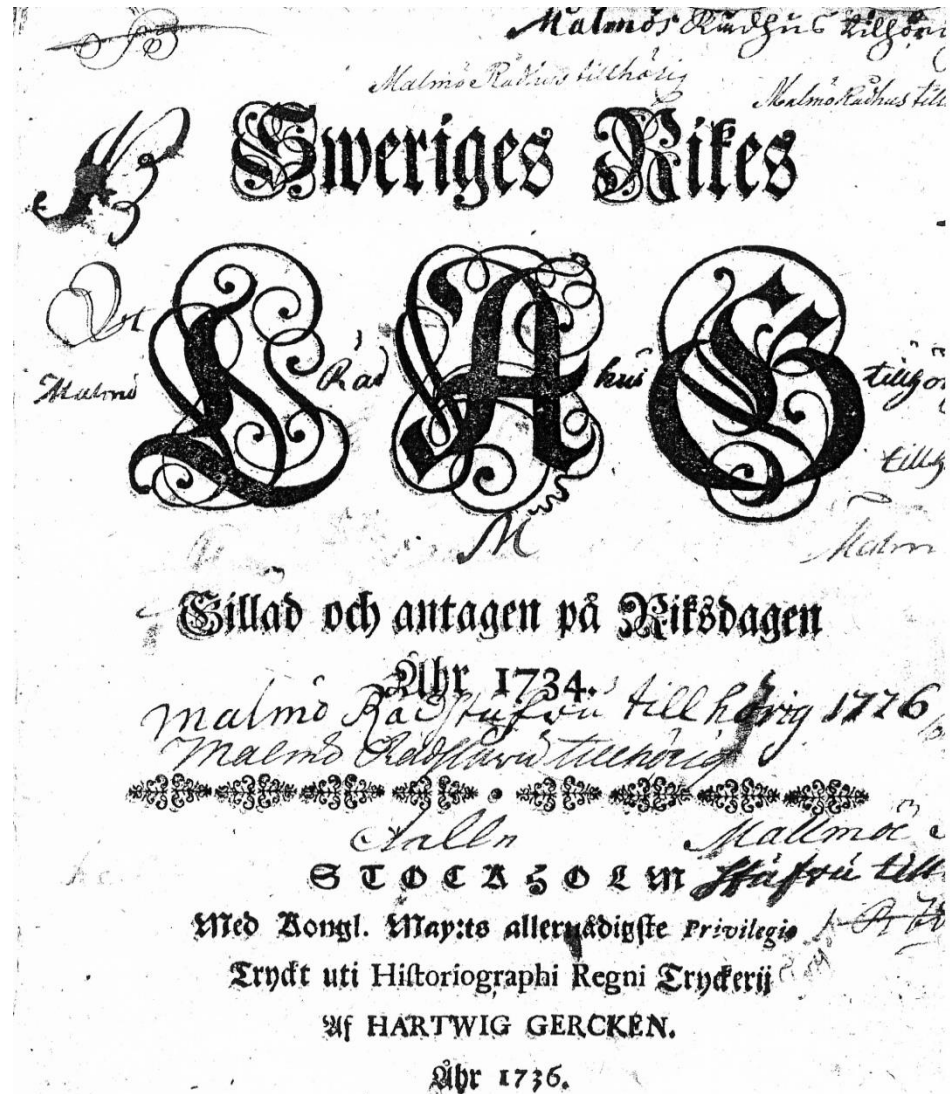 Malmös Rådhus tillhöri
Malmö Rådhus tillhörig
Malmö Rådhus till
Sweriges Rikes
LAG
Malmö Råd hus tillhör
tillh
M
Malm
Gillad och antagen på Riksdagen
Åhr 1734.
Malmö Rådstufvu tillhörig 1776
Malmö Rådstuvu tillhörig
Mallmöe
STOCKHOLM
stufvu till
Med Kongl. May:ts allernådigste Privilegio
Tryckt uti Historiographi Regni Tryckerij
Af HARTWIG GERCKEN.
Åhr 1736.